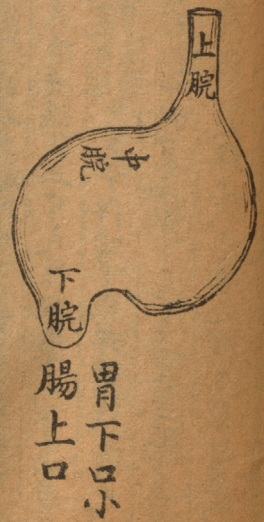 上脘
中脘
下脘
胃下口小
腸上口